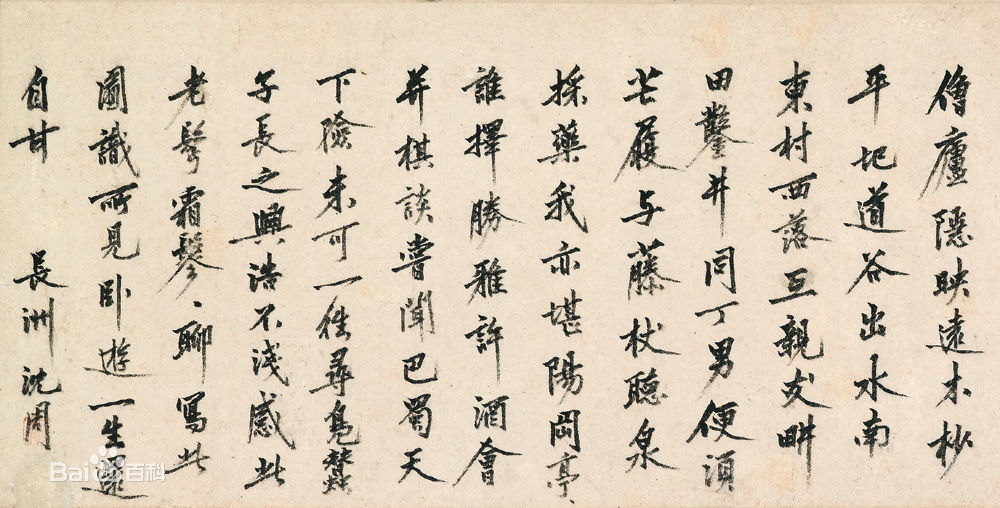 僧廬隱映遠木杪
平地道谷出水南
東村西落互親友畊
田鑿井同丁男便須
芒屨与藤杖聽泉
採藥我亦堪陽岡亭
誰擇勝雅許酒會
并棋談嘗聞巴蜀天
下險未可一往尋鳧蠶
子長之興浩不淺感此
老髩霜鬖〻聊寫此
圖識所見卧遊一生還
自甘 長洲沈周
Bai百科